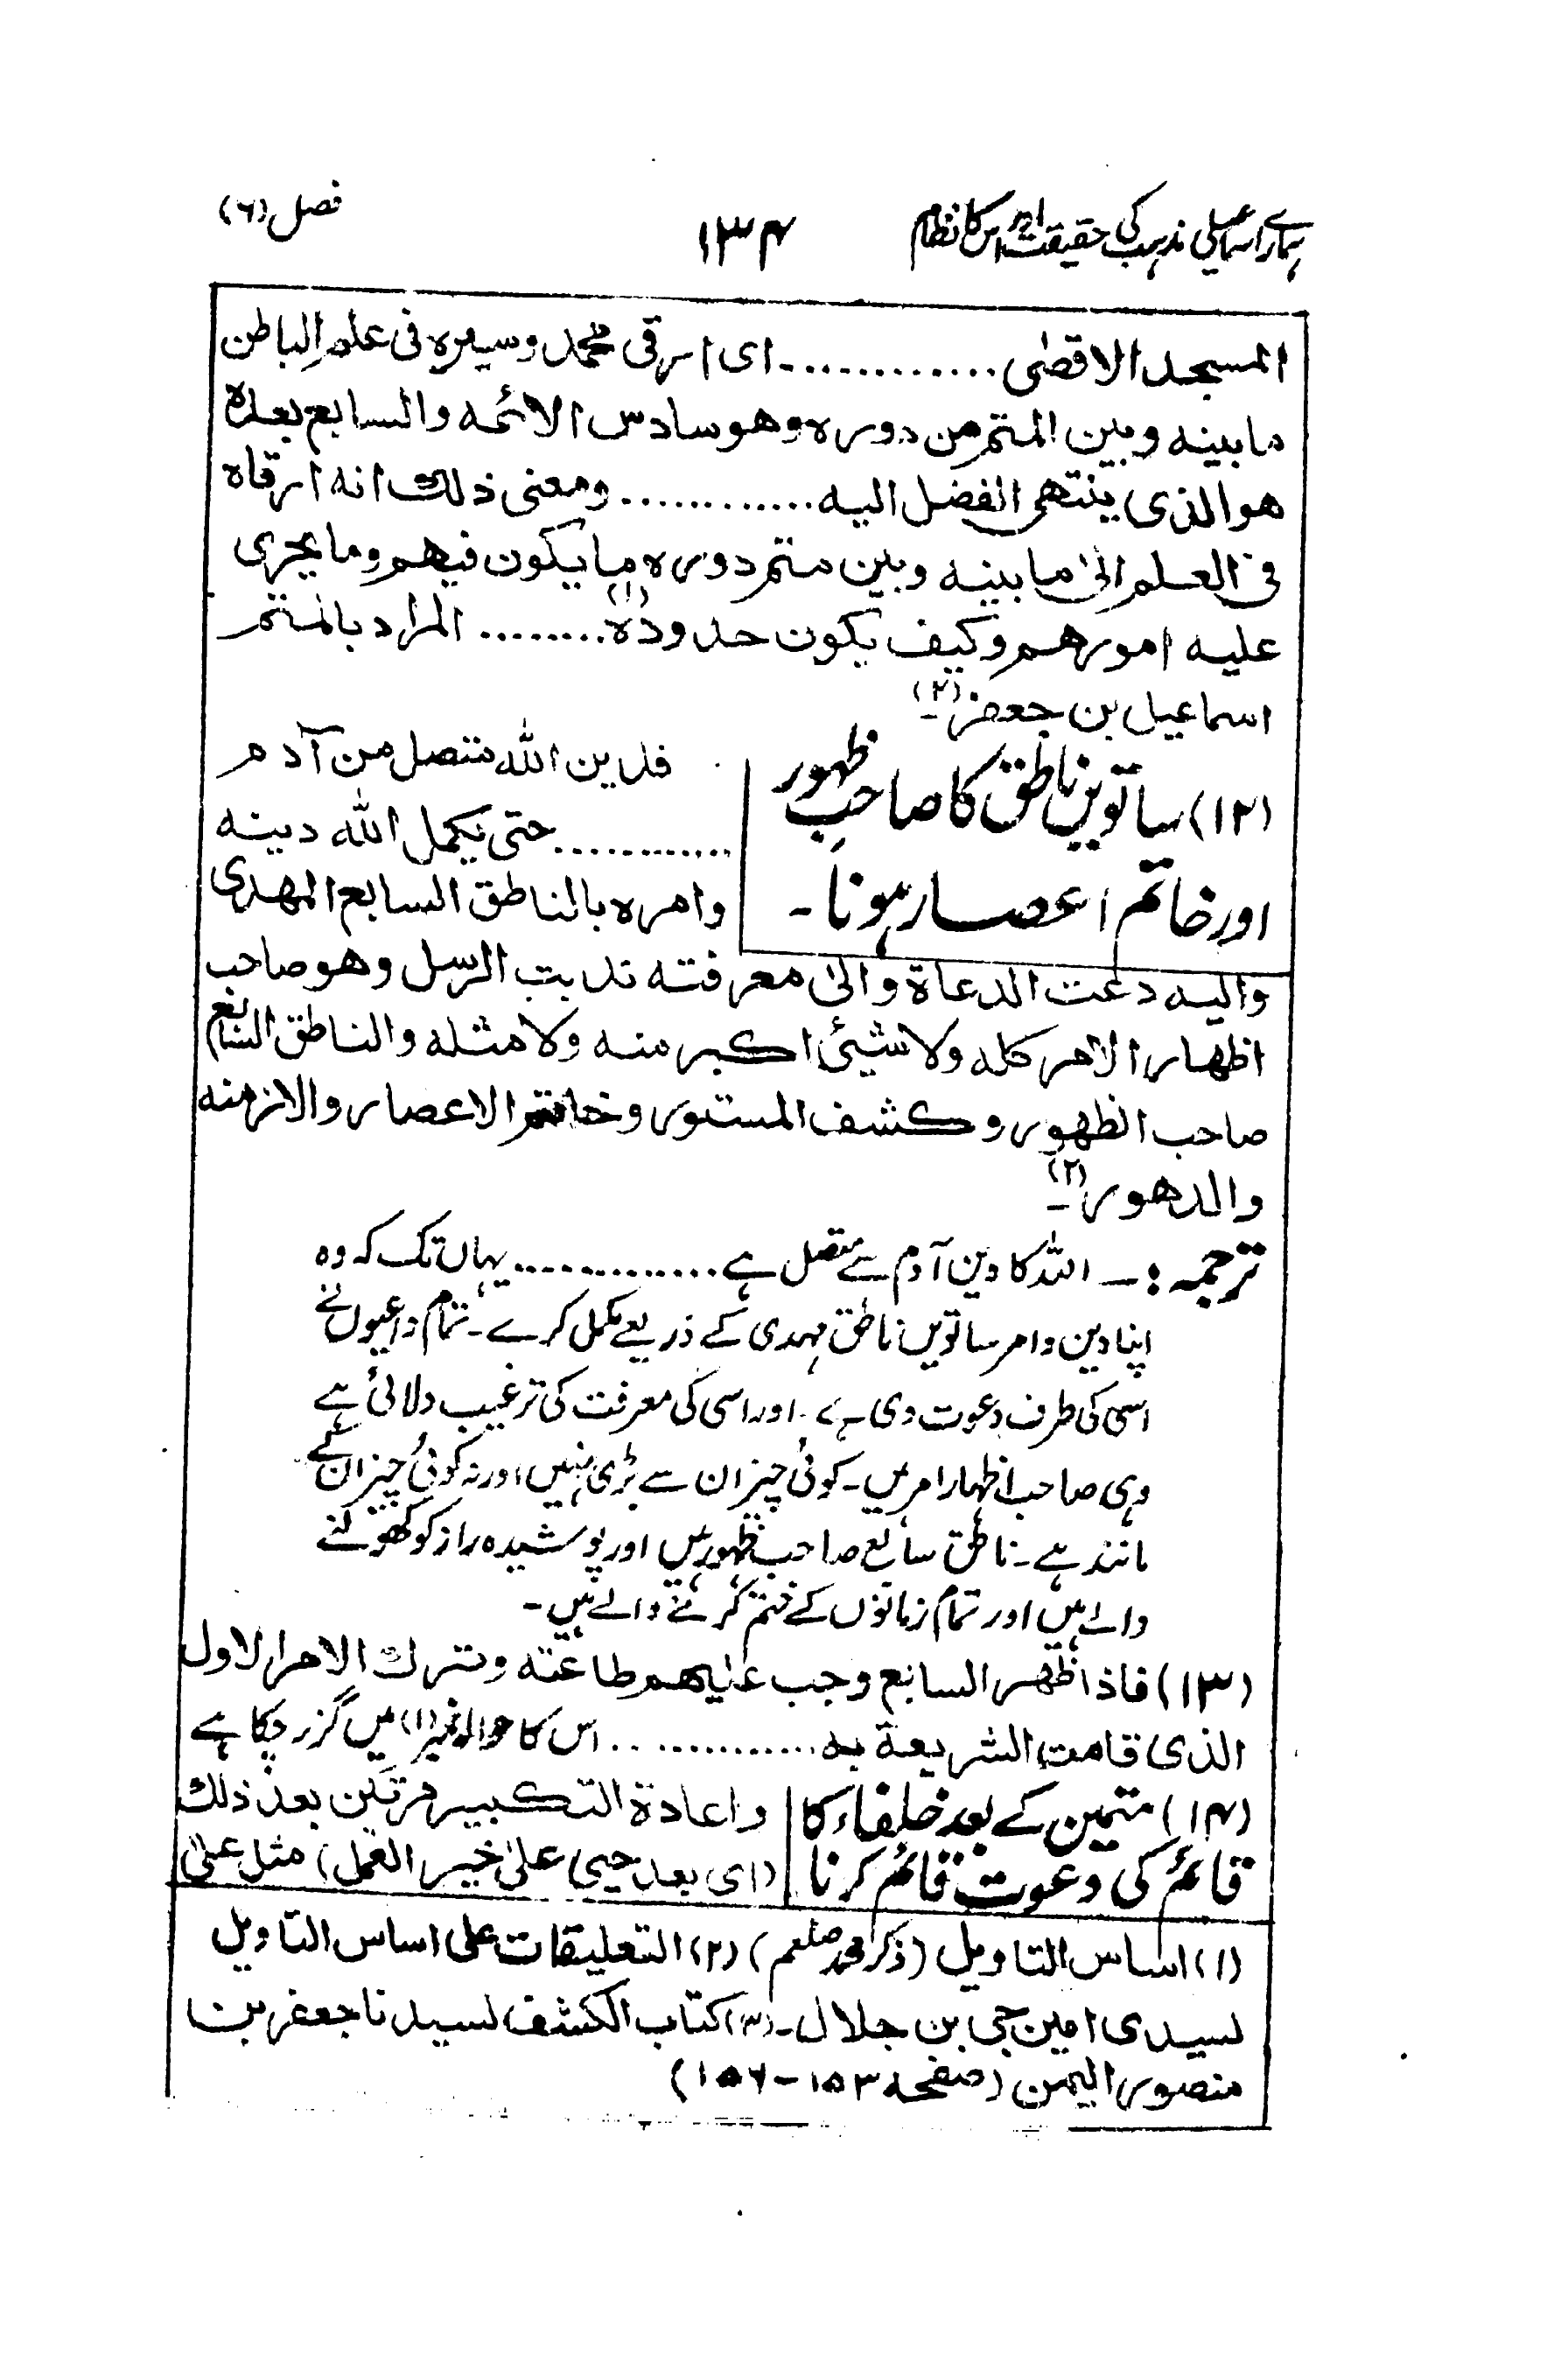 ہمارے اسماعیلی مذہب کی حقیقت اور اس کا نظام
۱۳۴
فصل (۶)
المسجد الاقصٰی .............۔ ای ارقی محمد وسیره فی علم الباطن
مابینه وبین المتم من دوره وهو سادس الائمه والسابع بعده
هو الذی ینتهی الفضل الیه ............. ومعنی ذلك انه ارقاه
فی العلم الیٰ مابینه وبین متم دوره مایکون فیهم وما یجری
علیه امورهم وکیف یکون حدوده(۱) ......... المراد بالمتم
اسماعیل بن جعفر(۲)۔
(۱۲) ساتویں ناطق کا صاحب ظہور
اور خاتم اعصار ہونا۔
فدین الله متصل من آدم
............. حتی یکمل الله دینه
وامره بالناطق السابع المهدی
والیه دعت الدعاة والیٰ معرفته ندبت الرسل وهو صاحب
اظهار الامر کله ولا شیئ اکبر منه ولا مثله والناطق السابع
صاحب الظهور وکشف المستور وخاتم الاعصار والازمنه
والدهور(۲)۔
ترجمہ :۔ اللہ کا دین آدم سے متصل ہے ............. یہاں تک کہ وہ
اپنا دین وامر ساتویں ناطق مہدی کے ذریعے مکمل کرے۔ تمام داعیوں نے
اسی کی طرف دعوت دی ہے۔ اور اسی کی معرفت کی ترغیب دلائی ہے
وہی صاحب اظہار امر ہیں۔ کوئی چیز ان سے بڑی نہیں اور نہ کوئی چیز ان کے
مانند ہے۔ ناطق سابع صاحب ظہور ہیں اور پوشیدہ راز کو کھولنے
والے ہیں اور تمام زمانوں کے ختم کرنے والے ہیں۔
(۱۳) فاذا ظهر السابع وجب علیهم طاعته وترك الامر الاول
الذی قامت الشریعة به ............. اس کا حوالہ نمبر (۱) میں گزر چکا ہے
(۱۴) متمین کے بعد خلفاء کا
قائم کی دعوت قائم کرنا
واعادة التکبیر مرتین بعد ذلك
(ای بعد حیی علیٰ خیر العمل) مثل علیٰ
(۱) اساس التاویل (ذکر محمد صلعم) (۲) التعلیقات علی اساس التاویل
لسیدی امین جی بن جلال۔ (۳) کتاب الکشف لسیدنا جعفر بن
منصور الیمن (صفحہ ۱۵۳-۱۵۶)